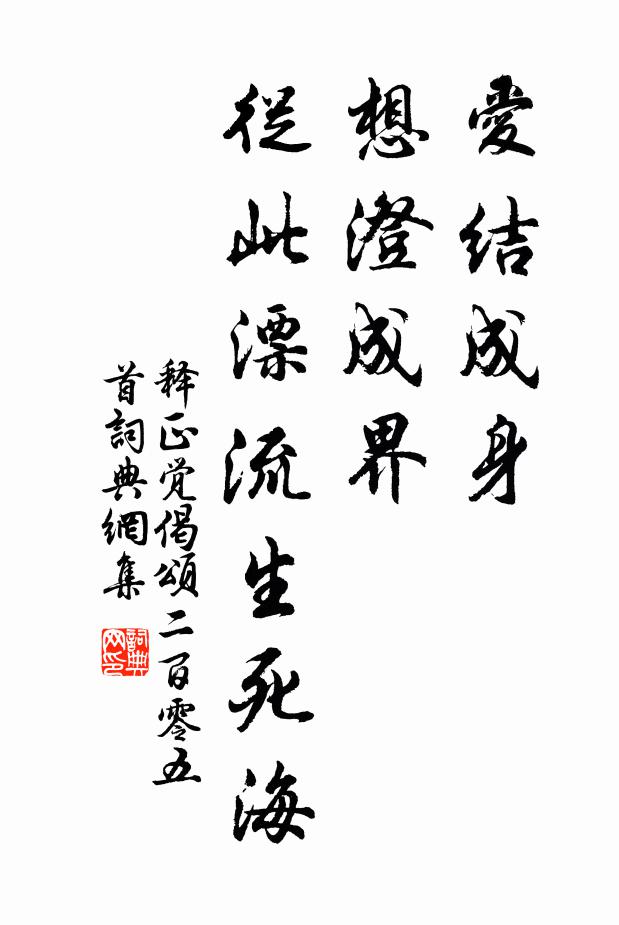 愛结成身
想澄成界
從此漂流生死海
释正觉偈頌二百零五
首詞典網集
詞典
网印